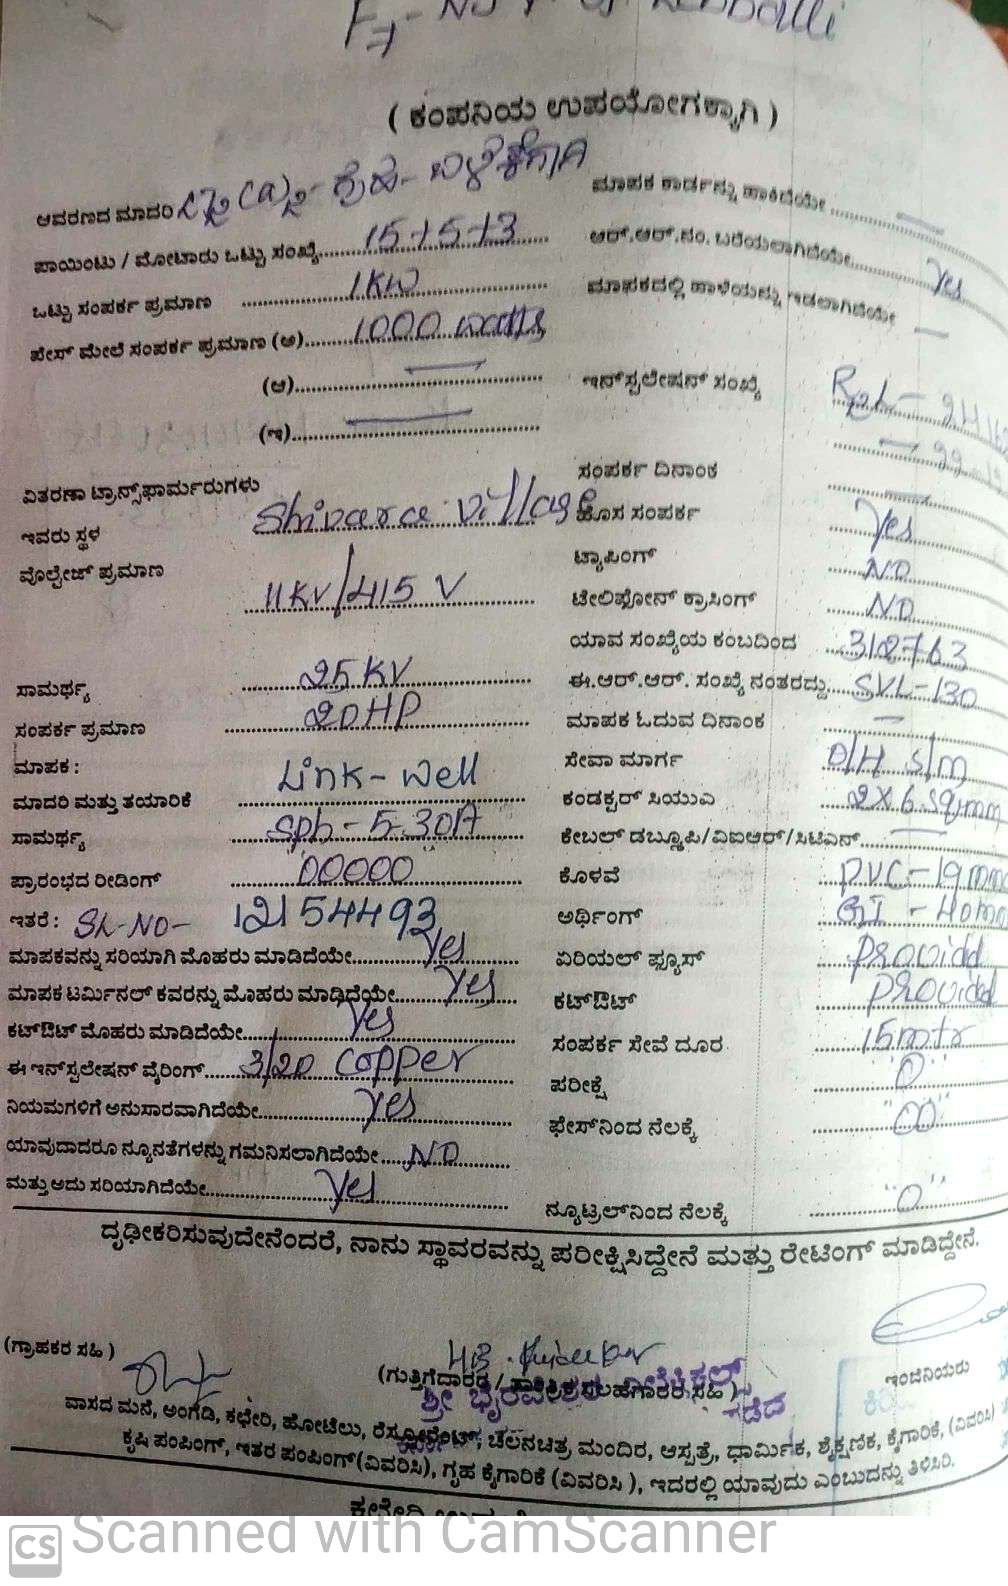 ( ಕಂಪನಿಯ ಉಪಯೋಗಕ್ಕಾಗಿ )
ಆವರಣದ ಮಾದರಿ
ಪಾಯಿಂಟು / ಮೋಟಾರು ಒಟ್ಟು ಸಂಖ್ಯೆ 15-15-13
ಒಟ್ಟು ಸಂಪರ್ಕ ಪ್ರಮಾಣ 1KW
ಪೇಸ್ ಮೇಲೆ ಸಂಪರ್ಕ ಪ್ರಮಾಣ (ಅ) 1000 watts
(ಆ)
(ಇ)
ವಿತರಣಾ ಟ್ರಾನ್ಸ್‌ಫಾರ್ಮರುಗಳು
ಇವರು ಸ್ಥಳ Shivarca Village
ವೊಲ್ಟೇಜ್ ಪ್ರಮಾಣ 11KV/415 V
ಸಾಮರ್ಥ್ಯ 25 KV
ಸಂಪರ್ಕ ಪ್ರಮಾಣ 20HP
ಮಾಪಕ :
ಮಾದರಿ ಮತ್ತು ತಯಾರಿಕೆ Link-well
ಸಾಮರ್ಥ್ಯ Sph-5-30A
ಪ್ರಾರಂಭದ ರೀಡಿಂಗ್ 00000
ಇತರೆ : SL-NO- 12154493
ಮಾಪಕವನ್ನು ಸರಿಯಾಗಿ ಮೊಹರು ಮಾಡಿದೆಯೇ Yes
ಮಾಪಕ ಟರ್ಮಿನಲ್ ಕವರನ್ನು ಮೊಹರು ಮಾಡಿದೆಯೇ Yes
ಕಟ್‌ಔಟ್ ಮೊಹರು ಮಾಡಿದೆಯೇ Yes
ಈ ಇನ್‌ಸ್ಟಲೇಷನ್ ವೈರಿಂಗ್ 3/20 Copper
ನಿಯಮಗಳಿಗೆ ಅನುಸಾರವಾಗಿದೆಯೇ Yes
ಯಾವುದಾದರೂ ನ್ಯೂನತೆಗಳನ್ನು ಗಮನಿಸಲಾಗಿದೆಯೇ NO
ಮತ್ತು ಅದು ಸರಿಯಾಗಿದೆಯೇ Yes
ಮಾಪಕ ಕಾರ್ಡನ್ನು ಹಾಕಿದೆಯೇ
ಆರ್.ಆರ್.ನಂ. ಬರೆಯಲಾಗಿದೆಯೇ Yes
ಮಾಪಕದಲ್ಲಿ ಹಾಳೆಯನ್ನು ಇಡಲಾಗಿದೆಯೇ
ಇನ್‌ಸ್ಟಲೇಷನ್ ಸಂಖ್ಯೆ
ಸಂಪರ್ಕ ದಿನಾಂಕ
ಹೊಸ ಸಂಪರ್ಕ Yes
ಟ್ಯಾಪಿಂಗ್ NO
ಟೇಲಿಫೋನ್ ಕ್ರಾಸಿಂಗ್ NO
ಯಾವ ಸಂಖ್ಯೆಯ ಕಂಬದಿಂದ 312763
ಈ.ಆರ್.ಆರ್. ಸಂಖ್ಯೆ ನಂತರದ್ದು SVL-130
ಮಾಪಕ ಓದುವ ದಿನಾಂಕ
ಸೇವಾ ಮಾರ್ಗ O/H S/m
ಕಂಡಕ್ಟರ್ ಸಿಯುಎ 2X6 Sqmm
ಕೇಬಲ್ ಡಬ್ಲ್ಯೂಪಿ/ವಿಐಆರ್/ಸಿಟಿಎಸ್
ಕೊಳವೆ PVC-19mm
ಅರ್ಥಿಂಗ್ GI - 40mm
ಏರಿಯಲ್ ಫ್ಯೂಸ್ Provided
ಕಟ್‌ಔಟ್ Provided
ಸಂಪರ್ಕ ಸೇವೆ ದೂರ 15mtr
ಪರೀಕ್ಷೆ "0"
ಫೇಸ್‌ನಿಂದ ನೆಲಕ್ಕೆ "00"
ನ್ಯೂಟ್ರಲ್‌ನಿಂದ ನೆಲಕ್ಕೆ "0"
ದೃಢೀಕರಿಸುವುದೇನೆಂದರೆ, ನಾನು ಸ್ಥಾವರವನ್ನು ಪರೀಕ್ಷಿಸಿದ್ದೇನೆ ಮತ್ತು ರೇಟಿಂಗ್ ಮಾಡಿದ್ದೇನೆ.
(ಗ್ರಾಹಕರ ಸಹಿ ) (ಗುತ್ತಿಗೆದಾರರ / ಸಲಹಗಾರರ ಸಹಿ ) ಇಂಜಿನಿಯರು
ಶ್ರೀ ಭೈರವೇಶ್ವರ
ವಾಸದ ಮನೆ, ಅಂಗಡಿ, ಕಛೇರಿ, ಹೋಟೆಲು, ರೆಸ್ಟೋರೆಂಟ್, ಚಲನಚಿತ್ರ ಮಂದಿರ, ಆಸ್ಪತ್ರೆ, ಧಾರ್ಮಿಕ, ಶೈಕ್ಷಣಿಕ, ಕೈಗಾರಿಕೆ, (ವಿವರಿಸಿ)
ಕೃಷಿ ಪಂಪಿಂಗ್, ಇತರ ಪಂಪಿಂಗ್ (ವಿವರಿಸಿ), ಗೃಹ ಕೈಗಾರಿಕೆ (ವಿವರಿಸಿ ), ಇದರಲ್ಲಿ ಯಾವುದು ಎಂಬುದನ್ನು ತಿಳಿಸಿರಿ.
CS Scanned with CamScanner